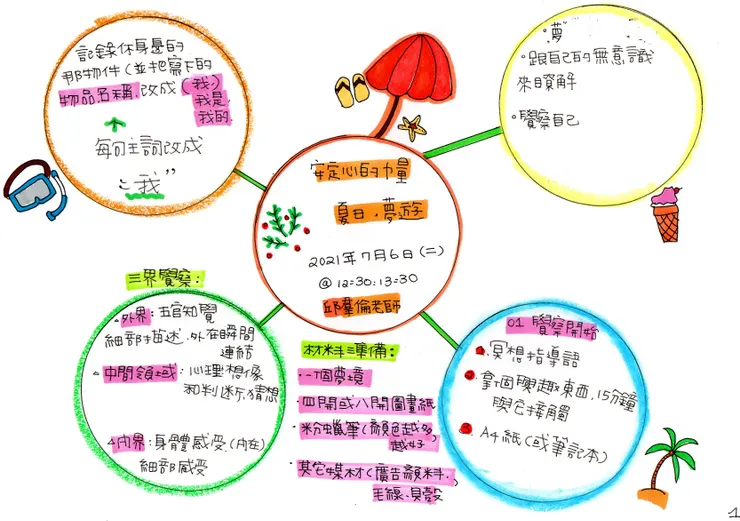 記錄你身邊的
那物件(並把寫下的
物品名稱,改成(我,)
我是,
我的.
每句主詞改成
"我"
夢
·跟自己的無意識
來自資解
·覺察自己
安定心的力量
夏日.夢遊
2021年7月6日(二)
@12:30:13:30
邱羣倫老師
三界覺察:
外界:五官知覺
細部描述.外在瞬間
連結
中間領域:心理想像
和判斷,猜想
內界:身體感受.(內在)
細部感受
材料準備:
·一個夢境
·四開或八開圖畫紙
·粉蠟筆(顏色越多,
越好)
·其它媒材(廣告顏料.
毛線.貝殼
01 覺察開始
冥想指導語
拿個興趣東西,15分鐘
與它接觸
A4紙(或筆記本)
1